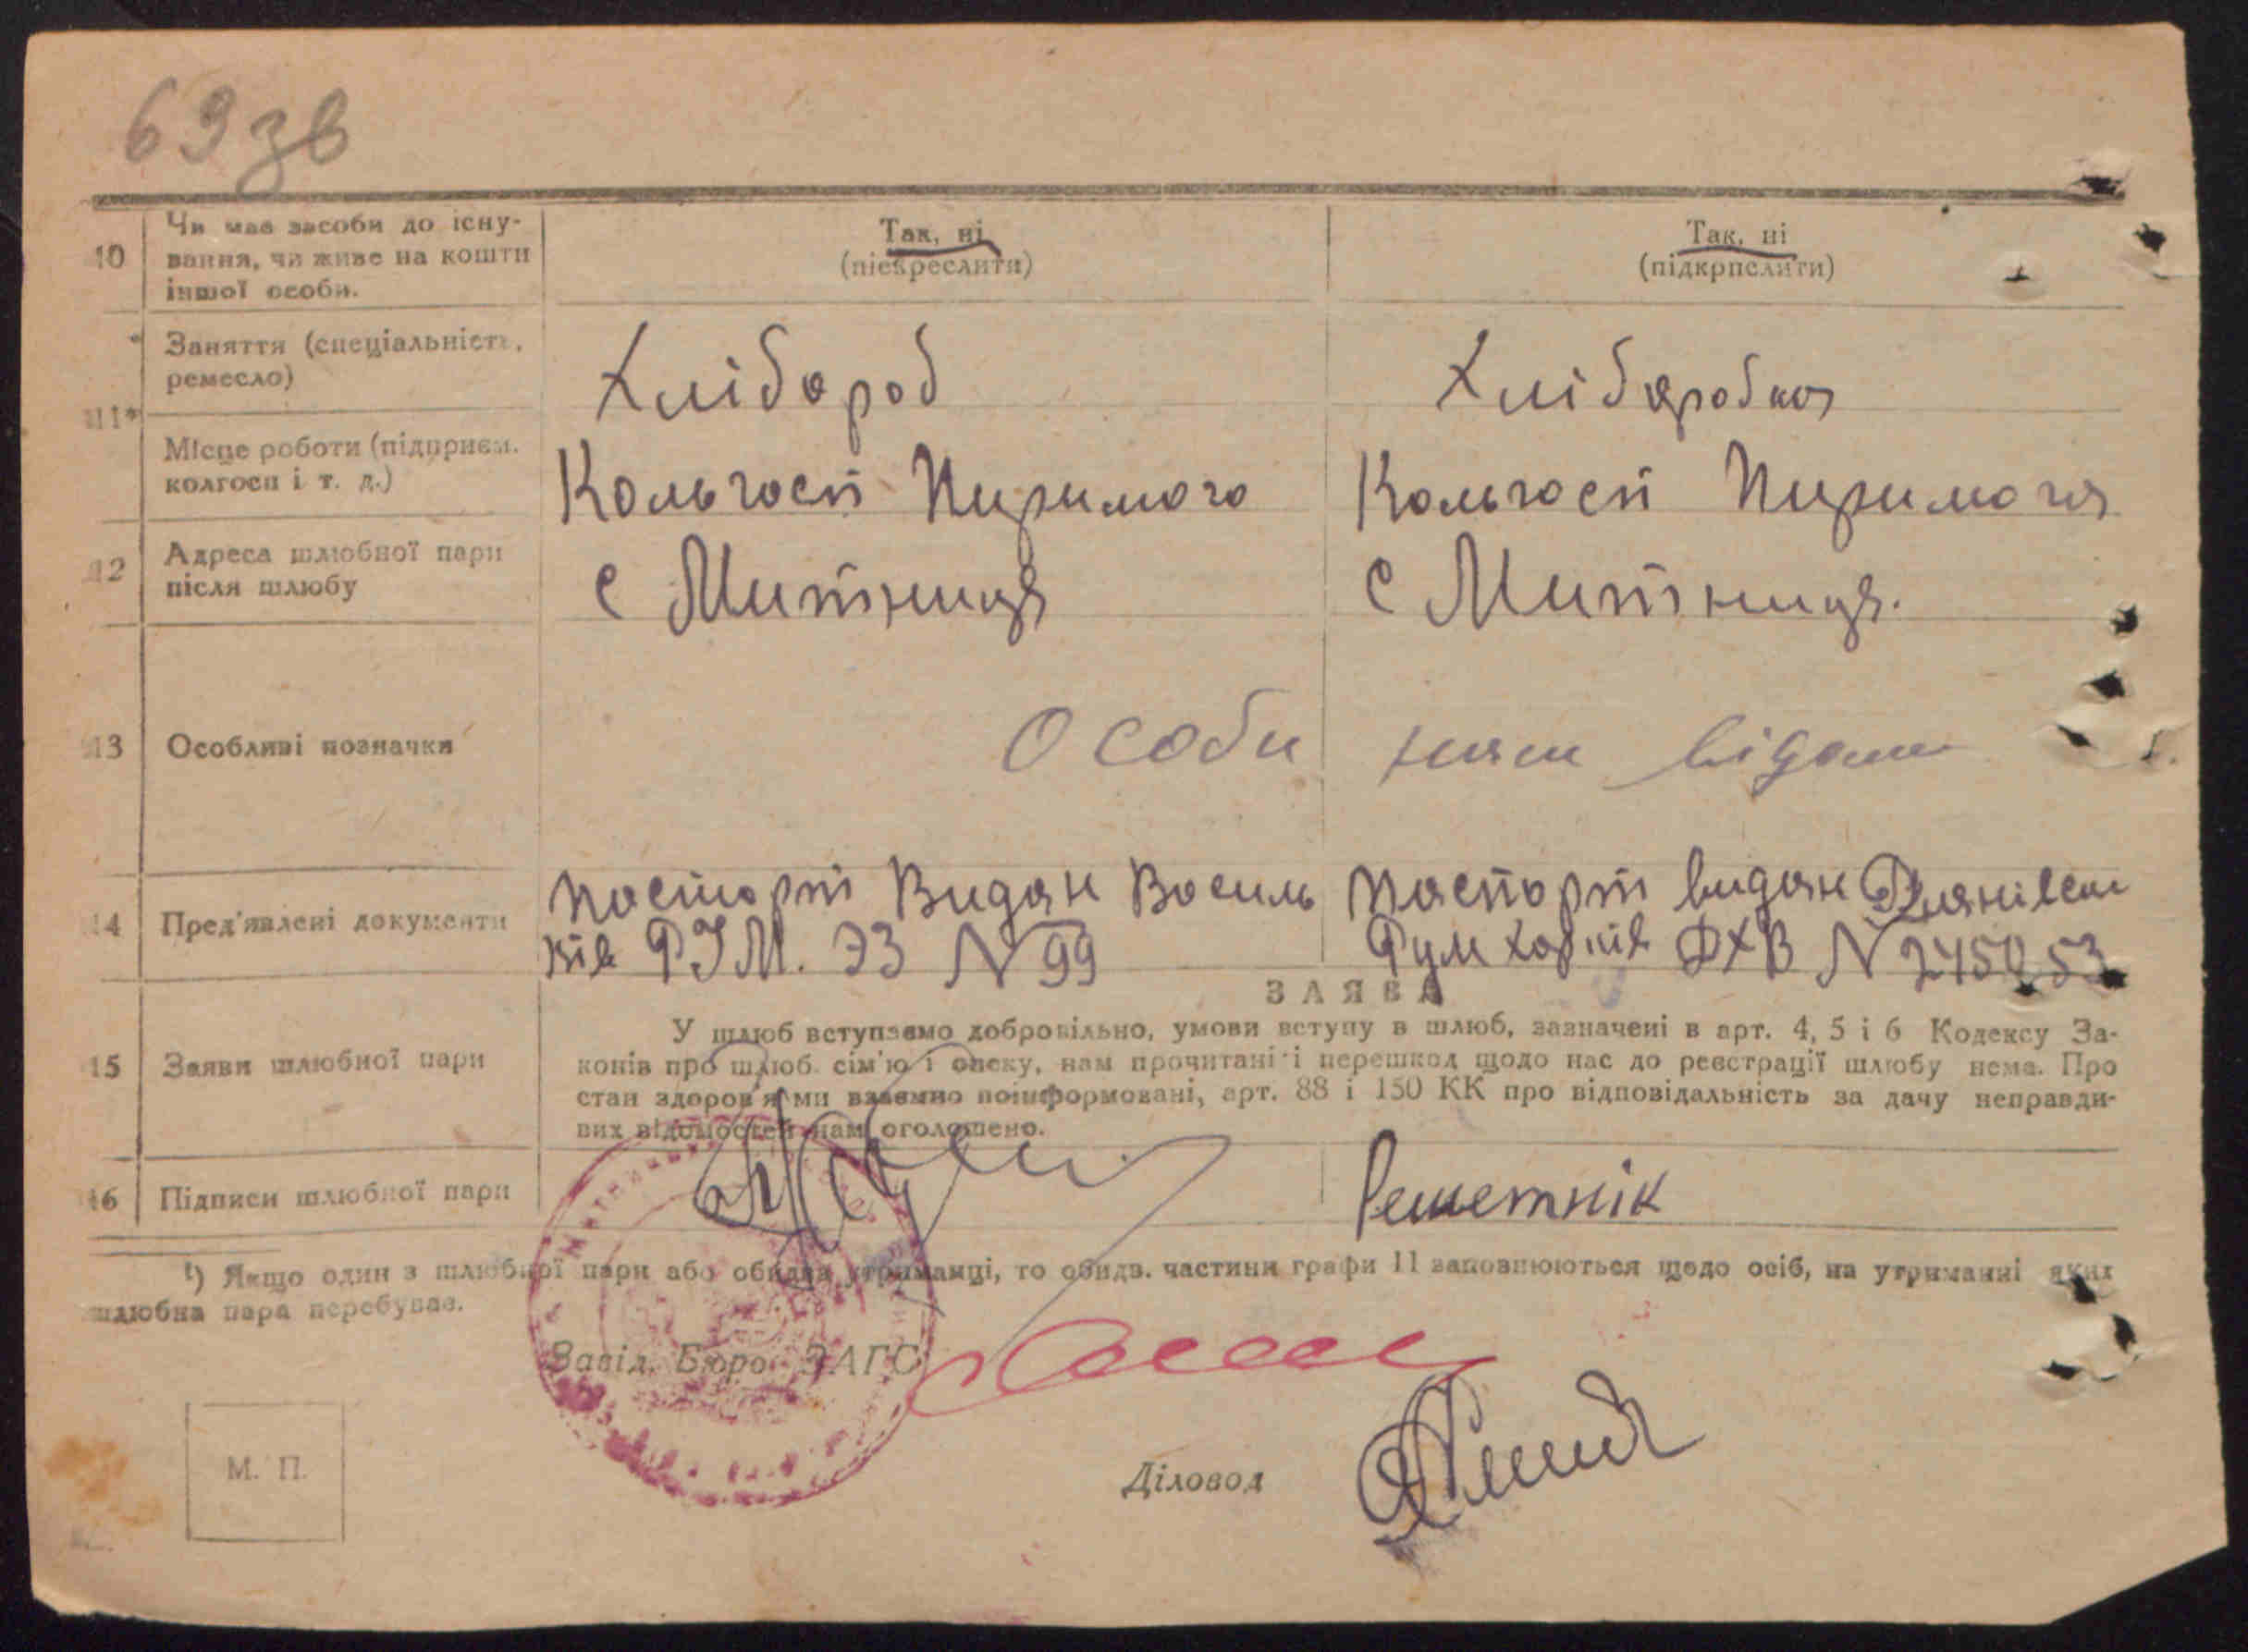 69 зв
10 Чи має засоби до існу- Так, ні Так, ні
вання, чи живе на кошти (підкреслити) (підкрпслити)
іншої особи.
11* Заняття (спеціальність, Хлібороб Хлібаробка
ремесло)
Місце роботи (підприєм. Кольгосп Пиримого Кольгосп Пиримога
колгосп і т. д.)
12 Адреса шлюбної пари с Митниця с Митниця.
після шлюбу
13 Особливі позначки Особи нам відоми
14 Пред'явлені документи Паспорт Видан Василь Паспорт видан
ків Р.І.М. ЭЗ N 99 Рум Харків ДХВ N 245053
ЗАЯВА
15 Заяви шлюбної пари У шлюб вступаємо добровільно, умови вступу в шлюб, зазначені в арт. 4, 5 і 6 Кодексу За-
конів про шлюб. сім'ю і опеку, нам прочитані і перешкод щодо нас до реєстрації шлюбу нема. Про
стан здоров'я ми взаємно поінформовані, арт. 88 і 150 КК про відповідальність за дачу неправди-
вих відомостей нам оголошено.
16 Підписи шлюбної пари Решетнік
¹) Якщо один з шлюбної пари або обидва утриманці, то обидв. частини графи 11 заповнюються щодо осіб, на утриманні яких
шлюбна пара перебуває.
Завід. Бюро ЗАГС
М. П.
Діловод